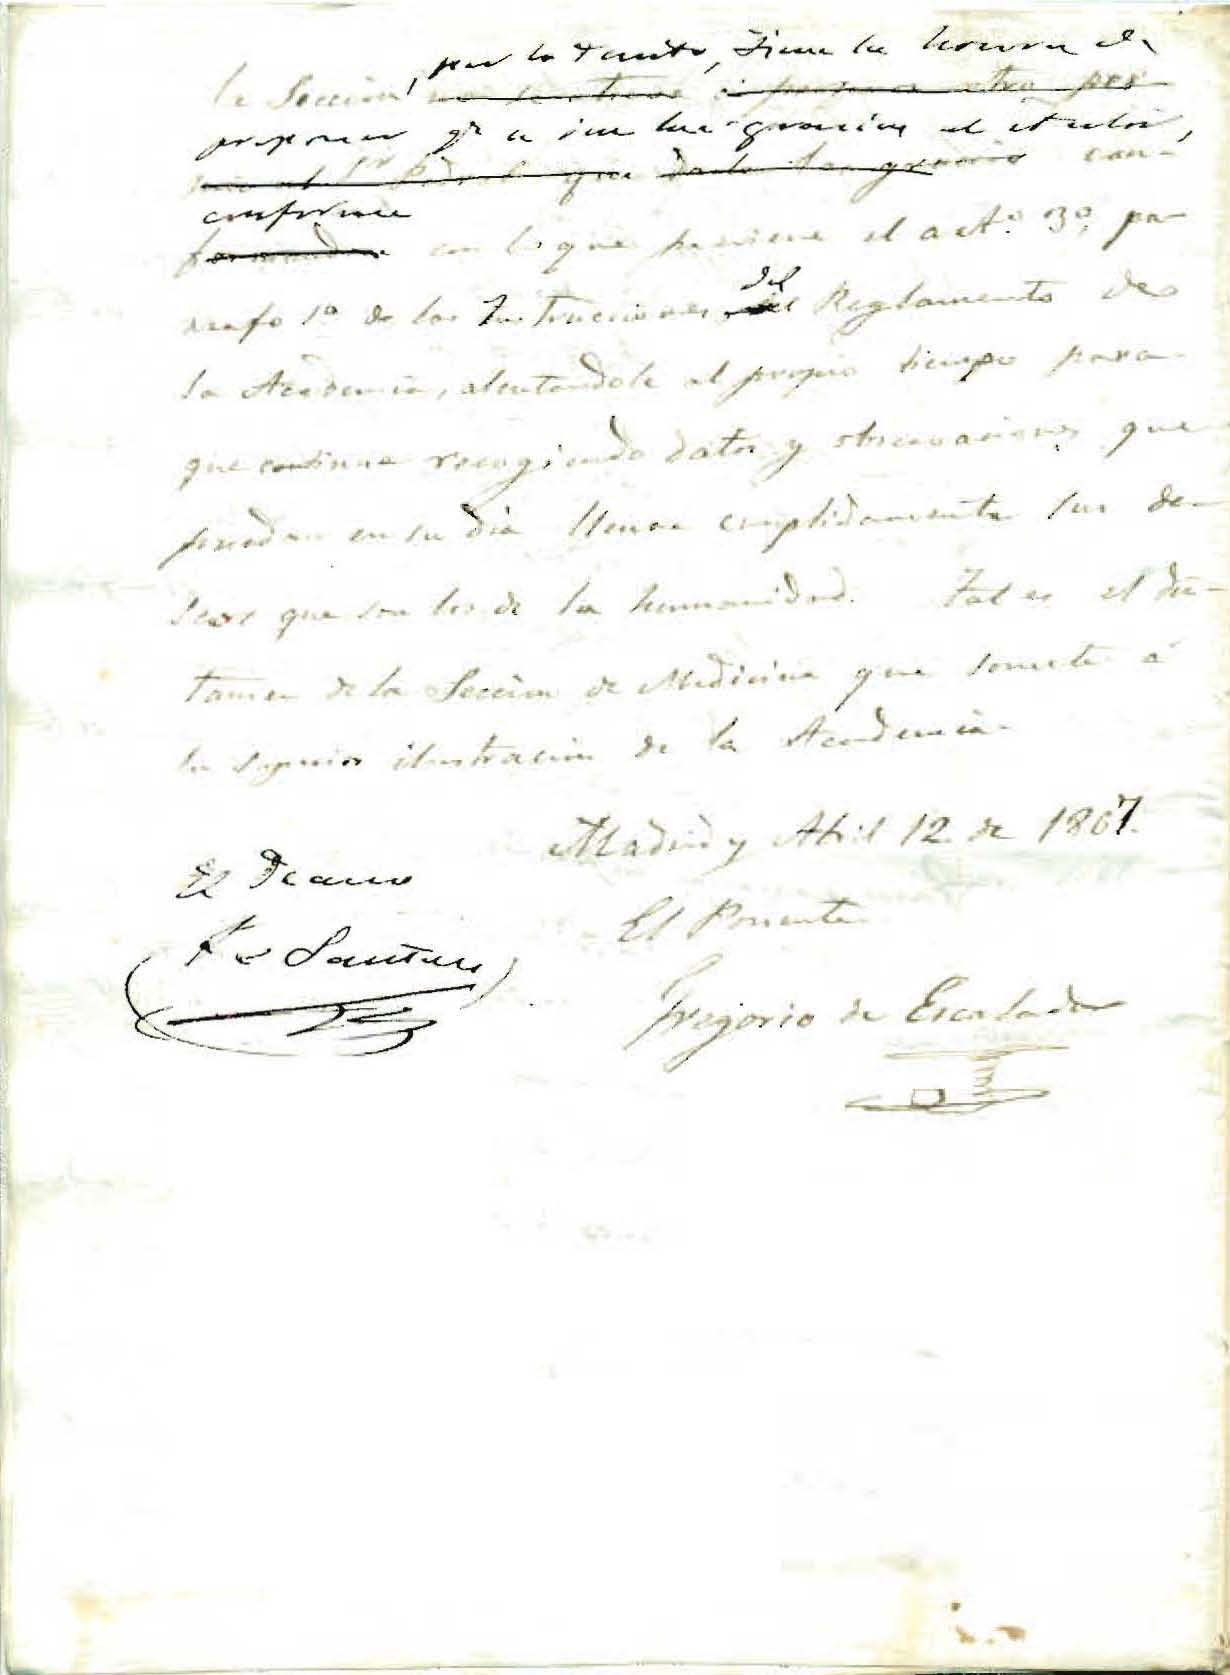 , por lo tanto, tiene la honra de
la Seccion
proponer qe se den las gracias al autor,
conforme
con lo que previene el art.o 3o, pa-
rrafo 1o de las Instrucciones del Reglamento de
la Academia, alentandole al propio tiempo para
que continue recogiendo datos y observaciones que
puedan en su dia llenar cumplidamente sus de-
seos que son los de la humanidad. Tal es el dic-
tamen de la Seccion de Medicina que somete á
la superior ilustracion de la Academia.
Madrid y Abril 12 de 1867.
El Decano
El Ponente
Santero
Gregorio de Escalada